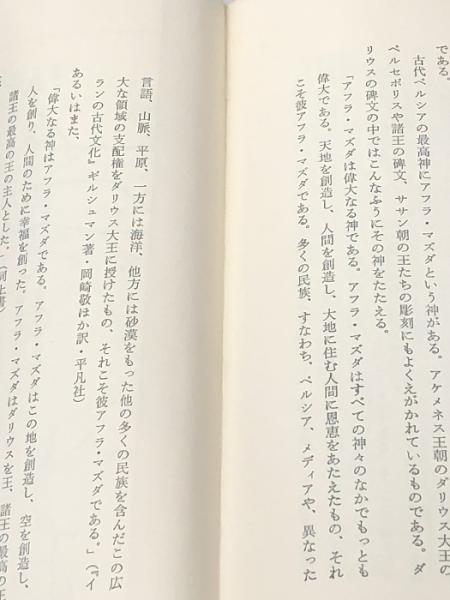 である。
古代ペルシアの最高神にアフラ・マズダという神がある。アケメネス王朝のダリウス大王の
ペルセポリスや諸王の碑文、ササン朝の王たちの彫刻にもよくえがかれているものである。ダ
リウスの碑文の中ではこんなふうにその神をたたえる。
「アフラ・マズダは偉大なる神である。アフラ・マズダはすべての神々のなかでもっとも
偉大である。天地を創造し、人間を創造し、大地に住む人間に恩恵をあたえたもの、それ
こそ彼アフラ・マズダである。多くの民族、すなわち、ペルシア、メディアや、異なった
言語、山脈、平原、一方には海洋、他方には砂漠をもった他の多くの民族を含んだこの広
大な領域の支配権をダリウス大王に授けたもの、それこそ彼アフラ・マズダである。」(『イ
ランの古代文化』ギルシュマン著・岡崎敬ほか訳・平凡社)
あるいはまた、
「偉大なる神はアフラ・マズダである。アフラ・マズダはこの地を創造し、空を創造し、
人を創り、人間のために幸福を創った。アフラ・マズダはダリウスを王、諸王の最高の王
諸王の最高の王の主人とした。」(同上書)